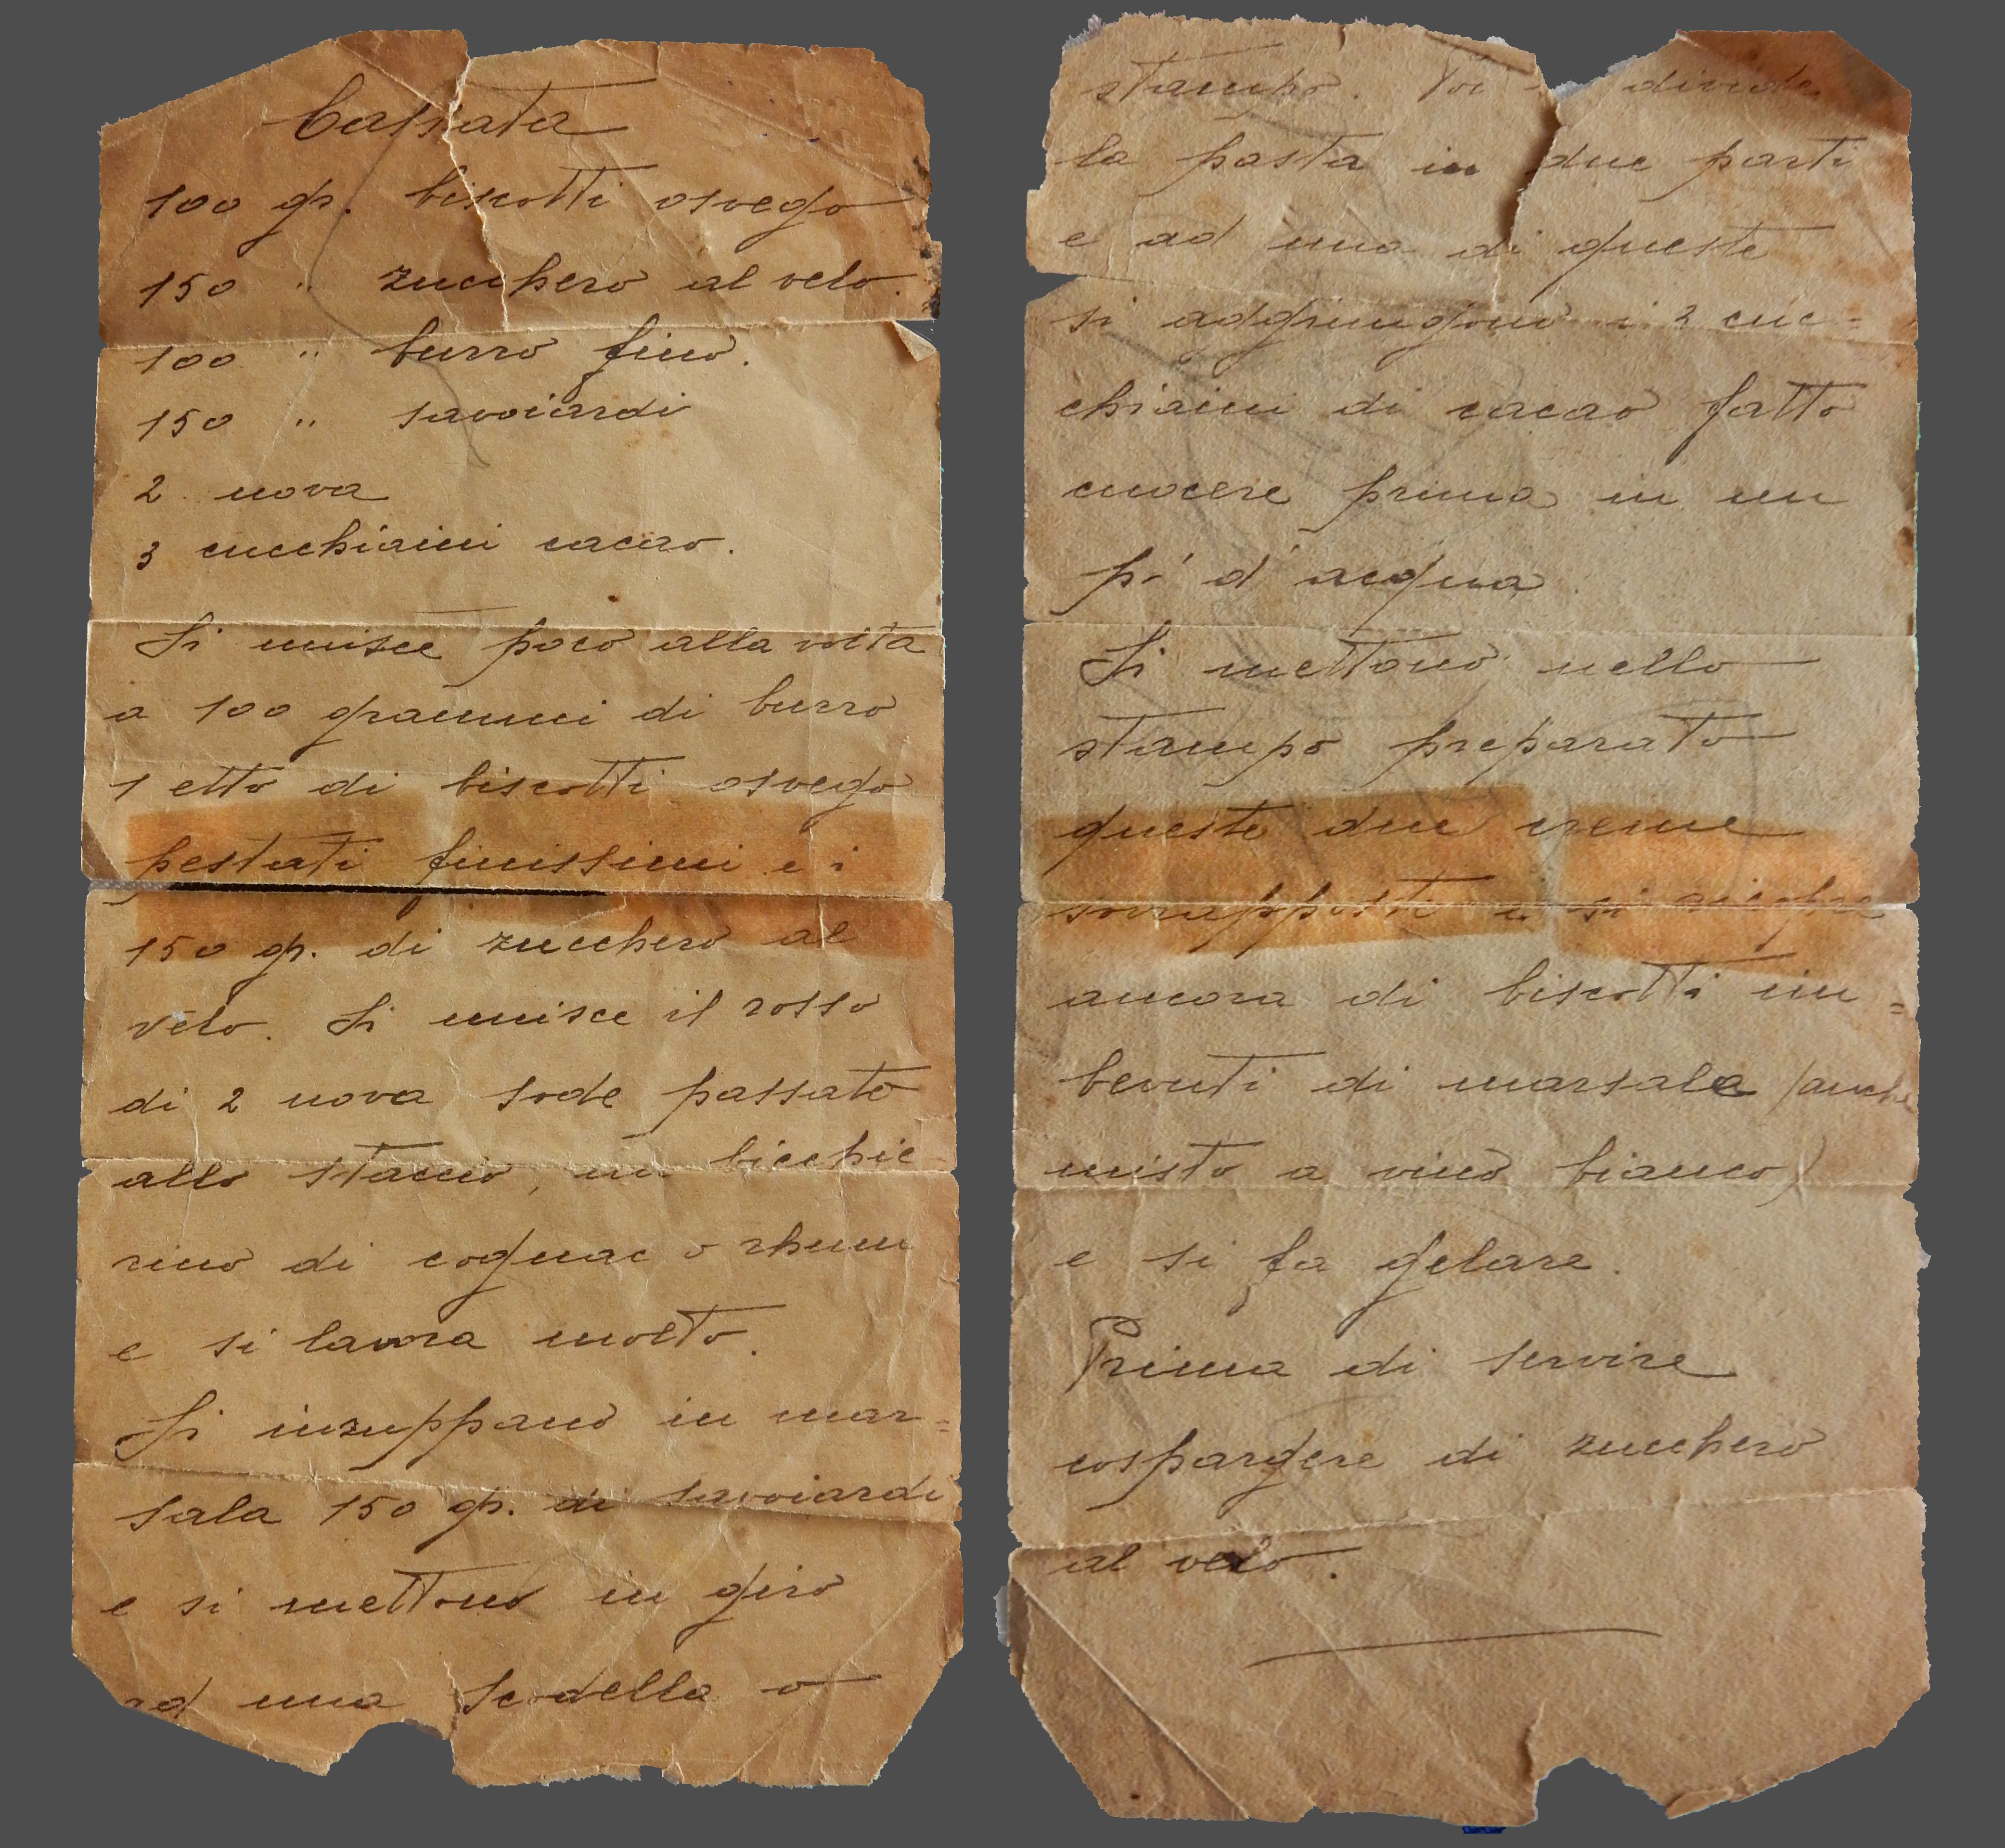 Cassata
100 gr. biscotti osvego
150 " zucchero al velo.
100 " burro fino.
150 " savoiardi
2 uova
3 cucchiaini cacao.
Si unisce poco alla volta
a 100 grammi di burro
1 etto di biscotti osvego
pestati finissimi e i
150 gr. di zucchero al
velo. Si unisce il rosso
di 2 uova sode passato
allo staccio, un bicchie-
rino di cognac o rhum
e si lavora molto.
Si inzuppano in mar=
sala 150 gr. di savoiardi
e si mettono in giro
ad una scodella o
stampo. Poi si divide
la pasta in due parti
e ad una di queste
si aggiungono i 2 cuc=
chiaini di cacao fatto
cuocere prima in un
pò d'acqua
Si mettono nello
stampo preparato
queste due creme
sovrapposte e si
ancora di biscotti im=
bevuti di marsala (anche
misto a vino bianco)
e si fa gelare.
Prima di servire
cospargere di zucchero
al velo.